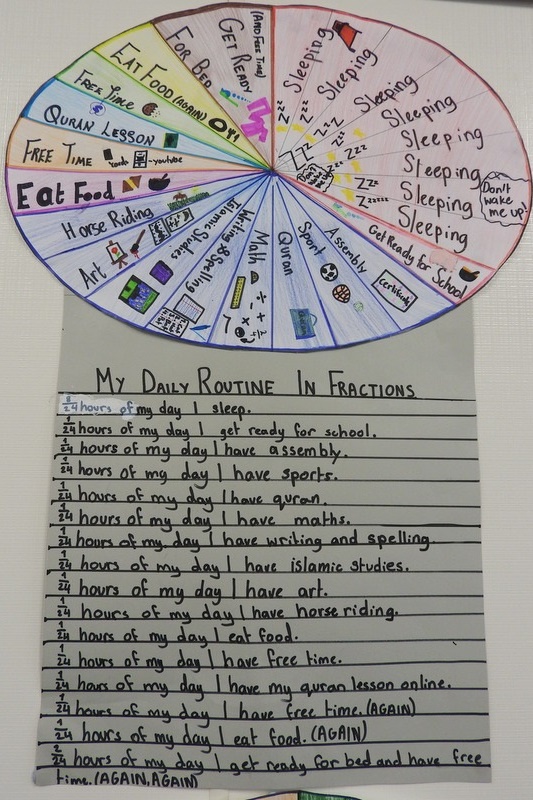 (AND FREE TIME)
GET READY
FOR BED
EAT FOOD (AGAIN)
FREE TIME
QURAN LESSON
FREE TIME
cards
-youtube
Eat Food
Horse Riding
Art
Islamic Studies
Writing & Spelling
Math
Quran
Sport
Assembly
Certificate
Get Ready for School
Sleeping
Sleeping
Sleeping
Sleeping
Sleeping
Sleeping
Sleeping
Sleeping
Don't
wake
me up!
MY DAILY ROUTINE IN FRACTIONS
8/24 hours of my day I sleep.
1/24 hours of my day I get ready for school.
1/24 hours of my day I have assembly.
1/24 hours of my day I have sports.
1/24 hours of my day I have quran.
1/24 hours of my day I have maths.
1/24 hours of my day I have writing and spelling.
1/24 hours of my day I have islamic studies.
1/24 hours of my day I have art.
1/24 hours of my day I have horse riding.
1/24 hours of my day I eat food.
1/24 hours of my day I have free time.
1/24 hours of my day I have my quran lesson online.
1/24 hours of my day I have free time. (AGAIN)
1/24 hours of my day I eat food. (AGAIN)
2/24 hours of my day I get ready for bed and have free
time. (AGAIN, AGAIN)